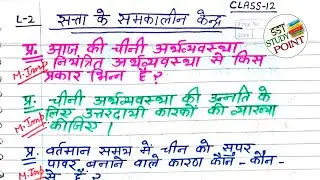 CLASS-12
L-2 सत्ता के समकालीन केन्द्र
SST STUDY POINT
प्र. आज की चीनी अर्थव्यवस्था
नियंत्रित अर्थव्यवस्था से किस
M.Imp प्रकार भिन्न है ?
प्र. चीनी अर्थव्यवस्था की उन्नति के
लिए उत्तरदायी कारकों की व्याख्या
M.Imp कीजिए ।
प्र. वर्तमान समय में चीन को सुपर
पावर बनाने वाले कारण कौन - कौन -
M.Imp से हैं ?